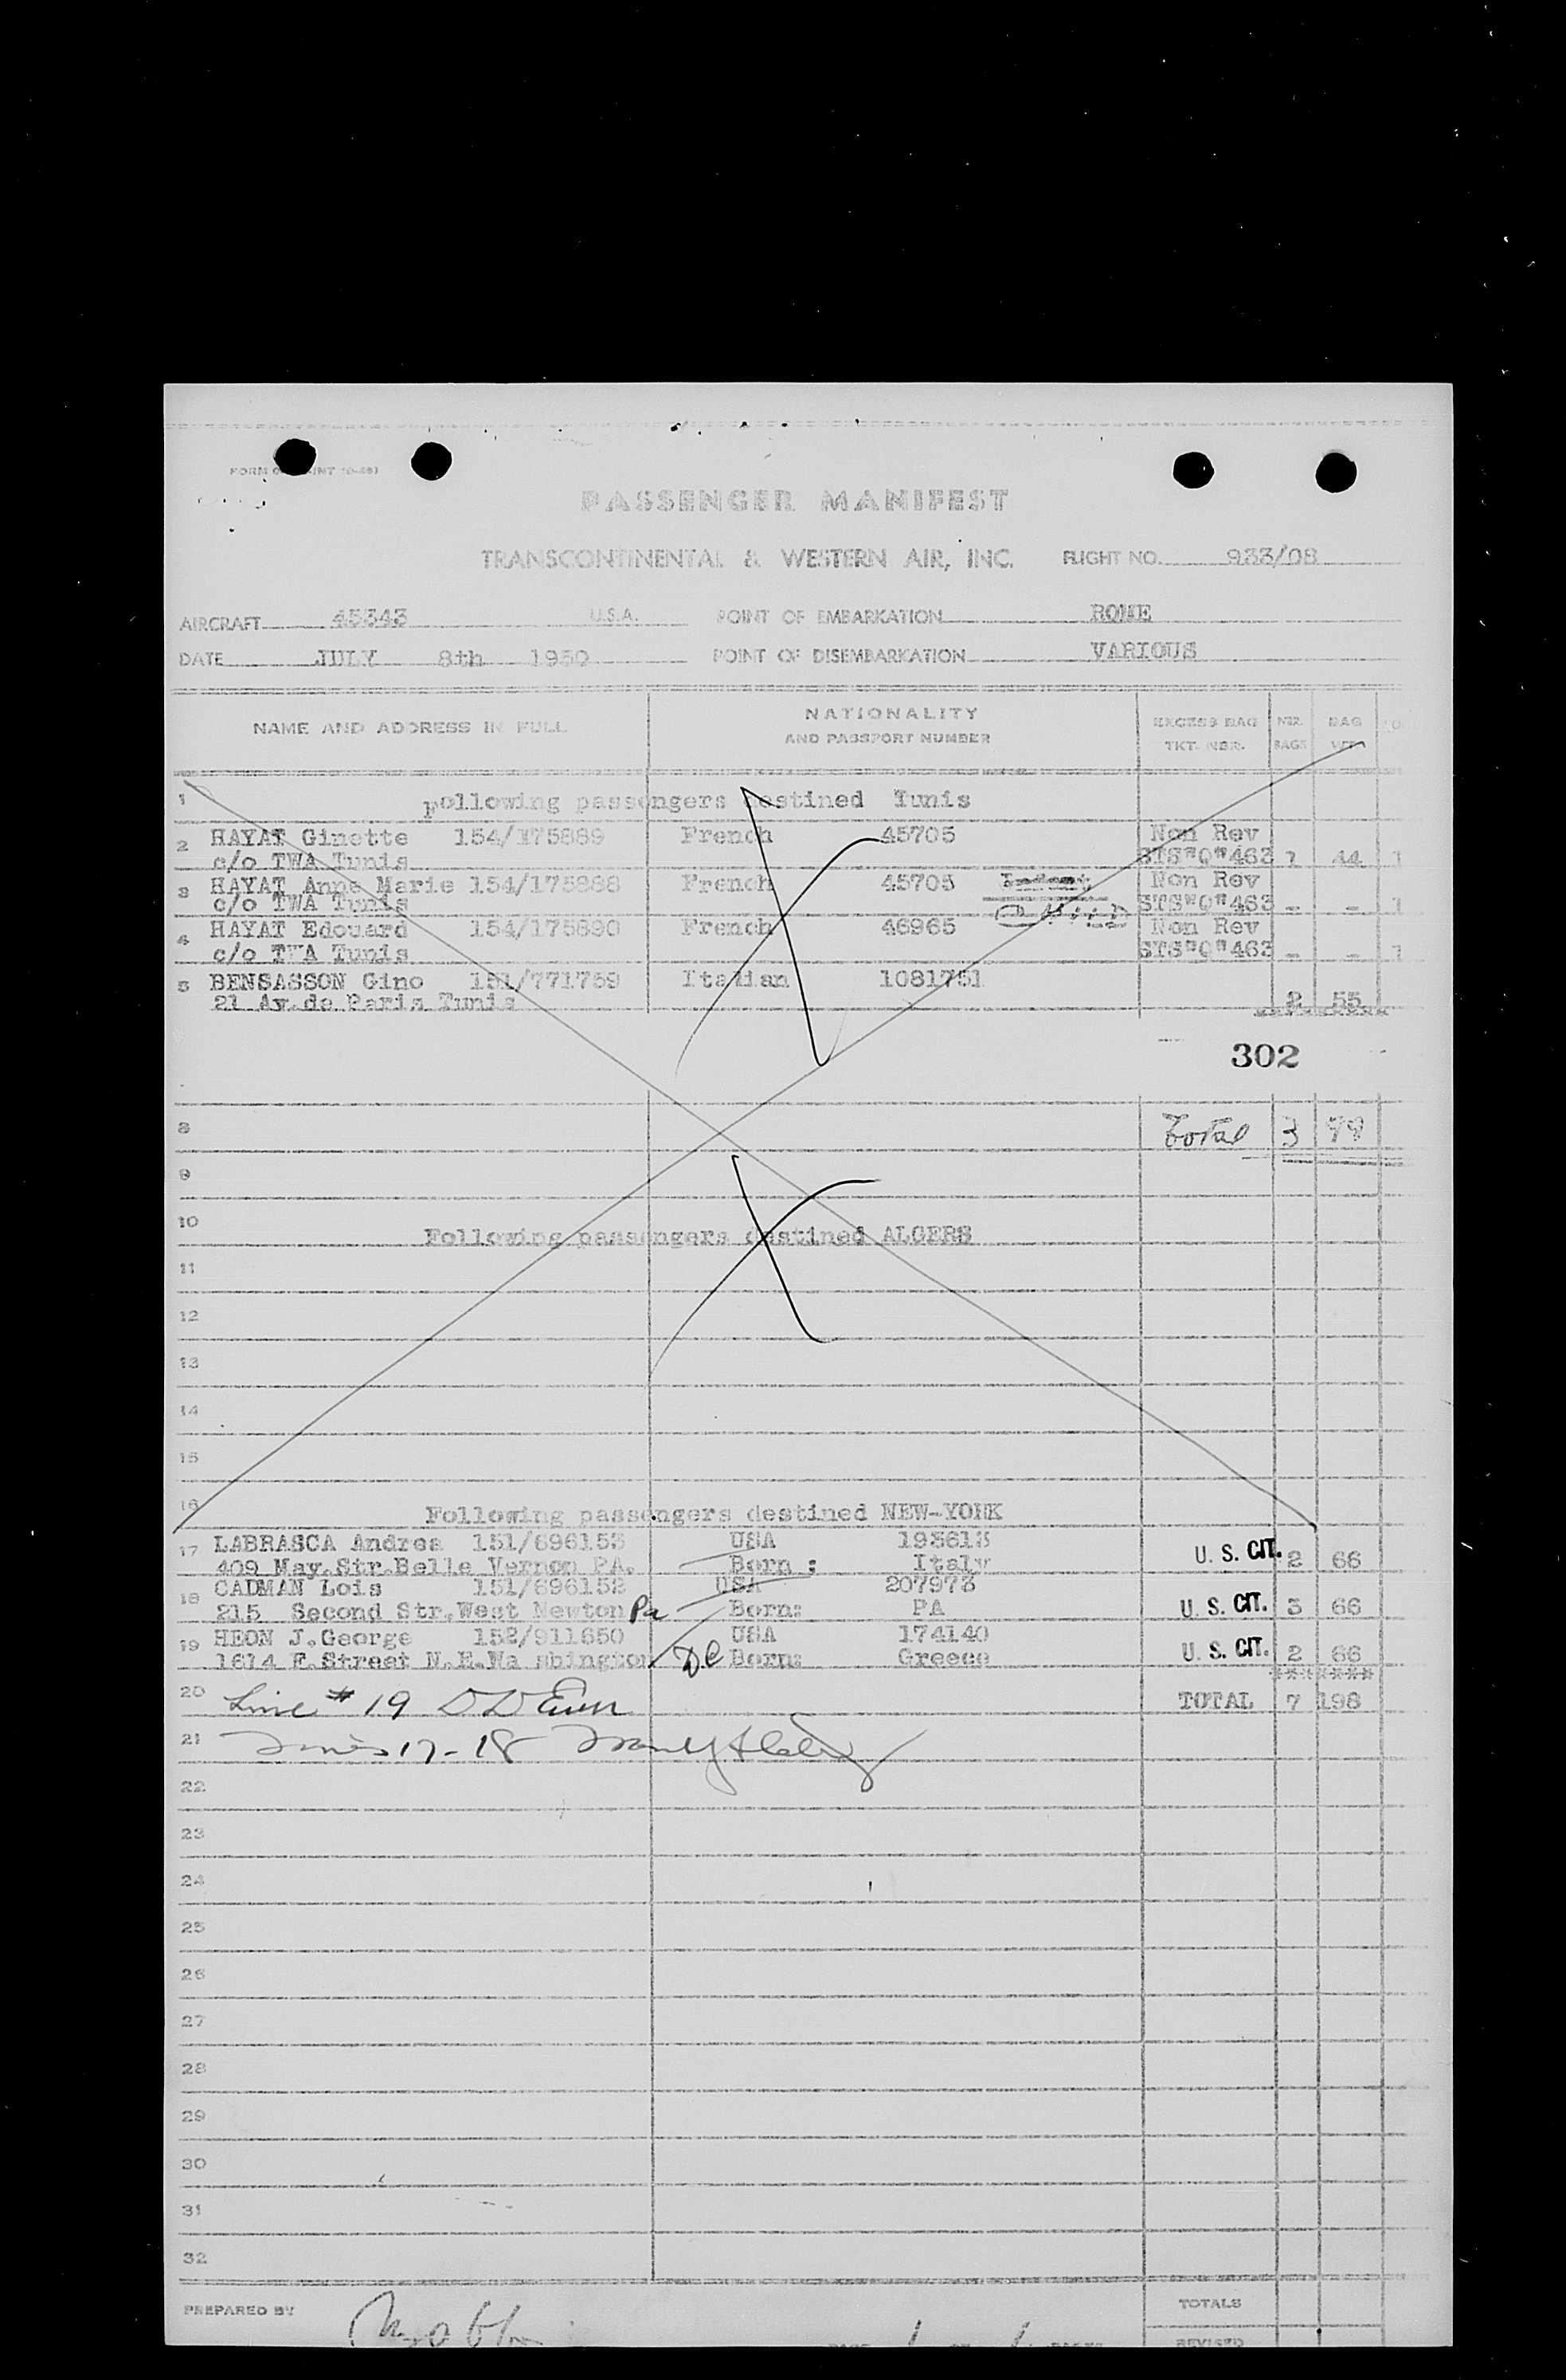 PASSENGER MANIFEST
TRANSCONTINENTAL & WESTERN AIR, INC. FLIGHT NO. 933/08
AIRCRAFT 45343 U.S.A. POINT OF EMBARKATION ROME
DATE JULY 8th 1950 POINT OF DISEMBARKATION VARIOUS
NAME AND ADDRESS IN FULL NATIONALITY AND PASSPORT NUMBER EXCESS BAG TKT. NBR. NBR. BAGS BAG WT.
1 Following passengers destined Tunis
2 HAYAT Ginette 154/175889 French 45705 Non Rev
c/o TWA Tunis STS"Q"463 1 44 1
3 HAYAT Anne Marie 154/175888 French 45705 Non Rev
c/o TWA Tunis STS"Q"463 - - 1
4 HAYAT Edouard 154/175890 French 46965 Non Rev
c/o TWA Tunis STS"Q"463 - - 1
5 BENSASSON Gino 151/771759 Italian 1081751
21 Av.de Paris Tunis 2 55
302
8 Total 3 99
9
10 Following passengers destined ALGERS
11
12
13
14
15
16 Following passengers destined NEW-YORK
17 LABRASCA Andrea 151/696153 USA 193613
409 May.Str.Belle Vernon PA. Born : Italy U. S. CIT. 2 66
18 CADMAN Lois 151/696152 USA 207973
215 Second Str.West Newton Pa Born: PA U. S. CIT. 3 66
19 HEON J.George 152/911650 USA 174140
1614 F.Street N.E.Wa shington DC Born: Greece U. S. CIT. 2 66
*******
20 Line # 19 TOTAL 7 198
21 Lines 17-18
22
23
24
25
26
27
28
29
30
31
32
PREPARED BY TOTALS
PAGE 1 OF 1 PAGES REVISED